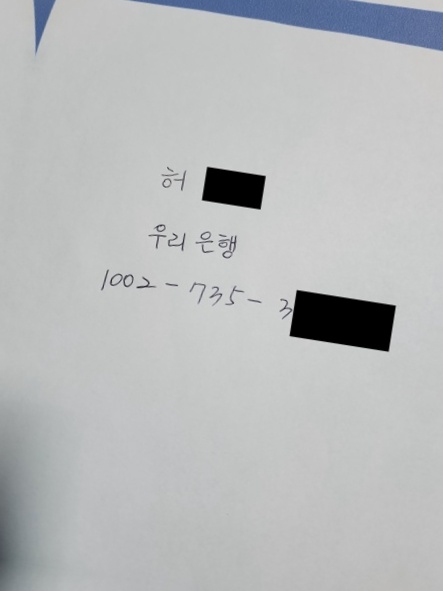 허
우리은행
1002-735-3